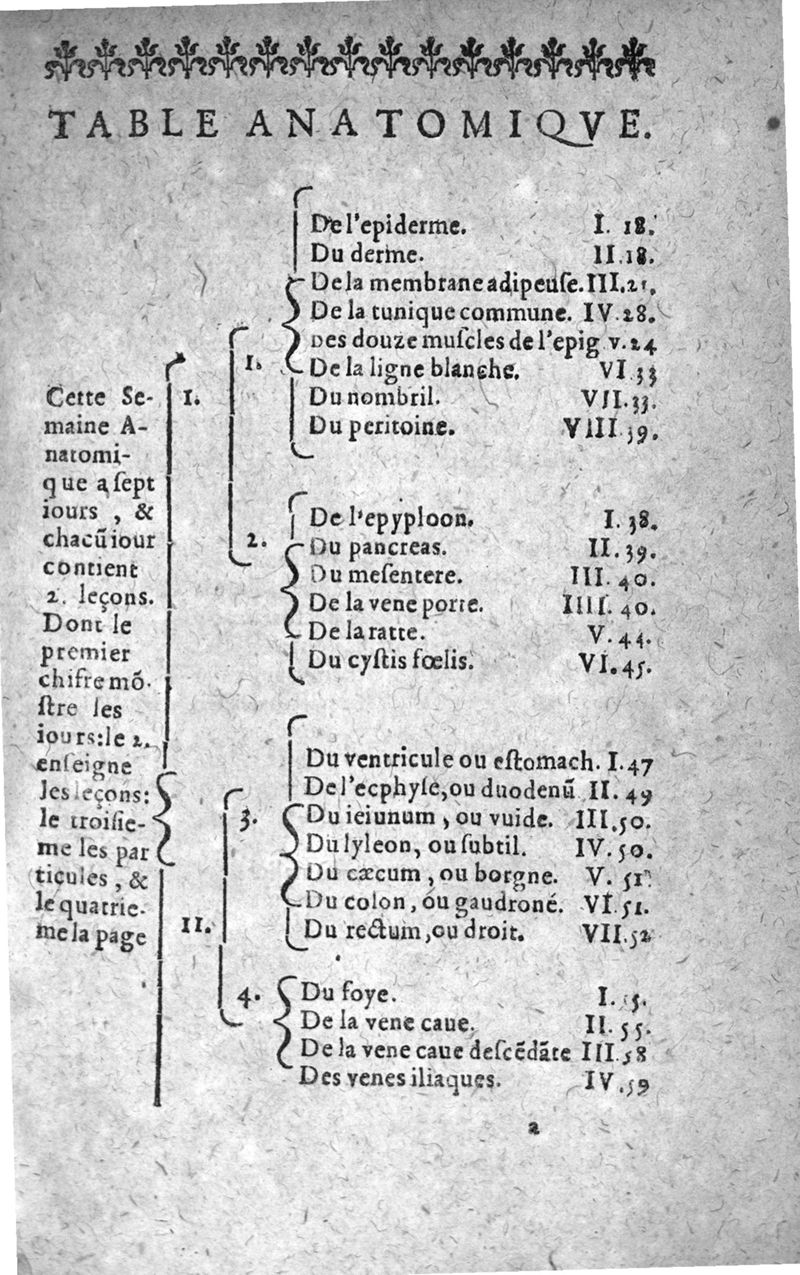 TABLE ANATOMIQVE.
Cette Se-
maine A-
natomi-
que a ſept
iours , &
chacũ iour
contient
2. leçons.
Dont le
premier
chifre mõ-
ſtre les
iours: le 2.
enſeigne
les leçons:
le troiſie-
me les par
ticules , &
le quatrie-
me la page
I.
1.
De l'epiderme. I. 18.
Du derme. II. 18.
De la membrane adipeuſe. III.
De la tunique commune. IV. 28.
Des douze muſcles de l'epig v. 24
De la ligne blanche. VI. 33
Du nombril. VII. 33.
Du peritoine. VIII. 39.
2.
De l'epyploon. I. 38.
Du pancreas. II. 39.
Du meſentere. III. 40.
De la vene porte. IIII. 40.
De la ratte. V. 44.
Du cyſtis fœlis. VI. 45.
II.
3.
Du ventricule ou eſtomach. I. 47
De l'ecphyſe, ou duodenũ II. 49
Du ieiunum , ou vuide. III. 50.
Du lyleon, ou ſubtil. IV. 50.
Du cæcum , ou borgne. V. 51
Du colon, ou gaudroné. VI. 51.
Du rectum, ou droit. VII. 52
4.
Du foye. I.
De la vene caue. II. 55.
De la vene caue deſcẽdãte III. 58
Des venes iliaques. IV. 59
a